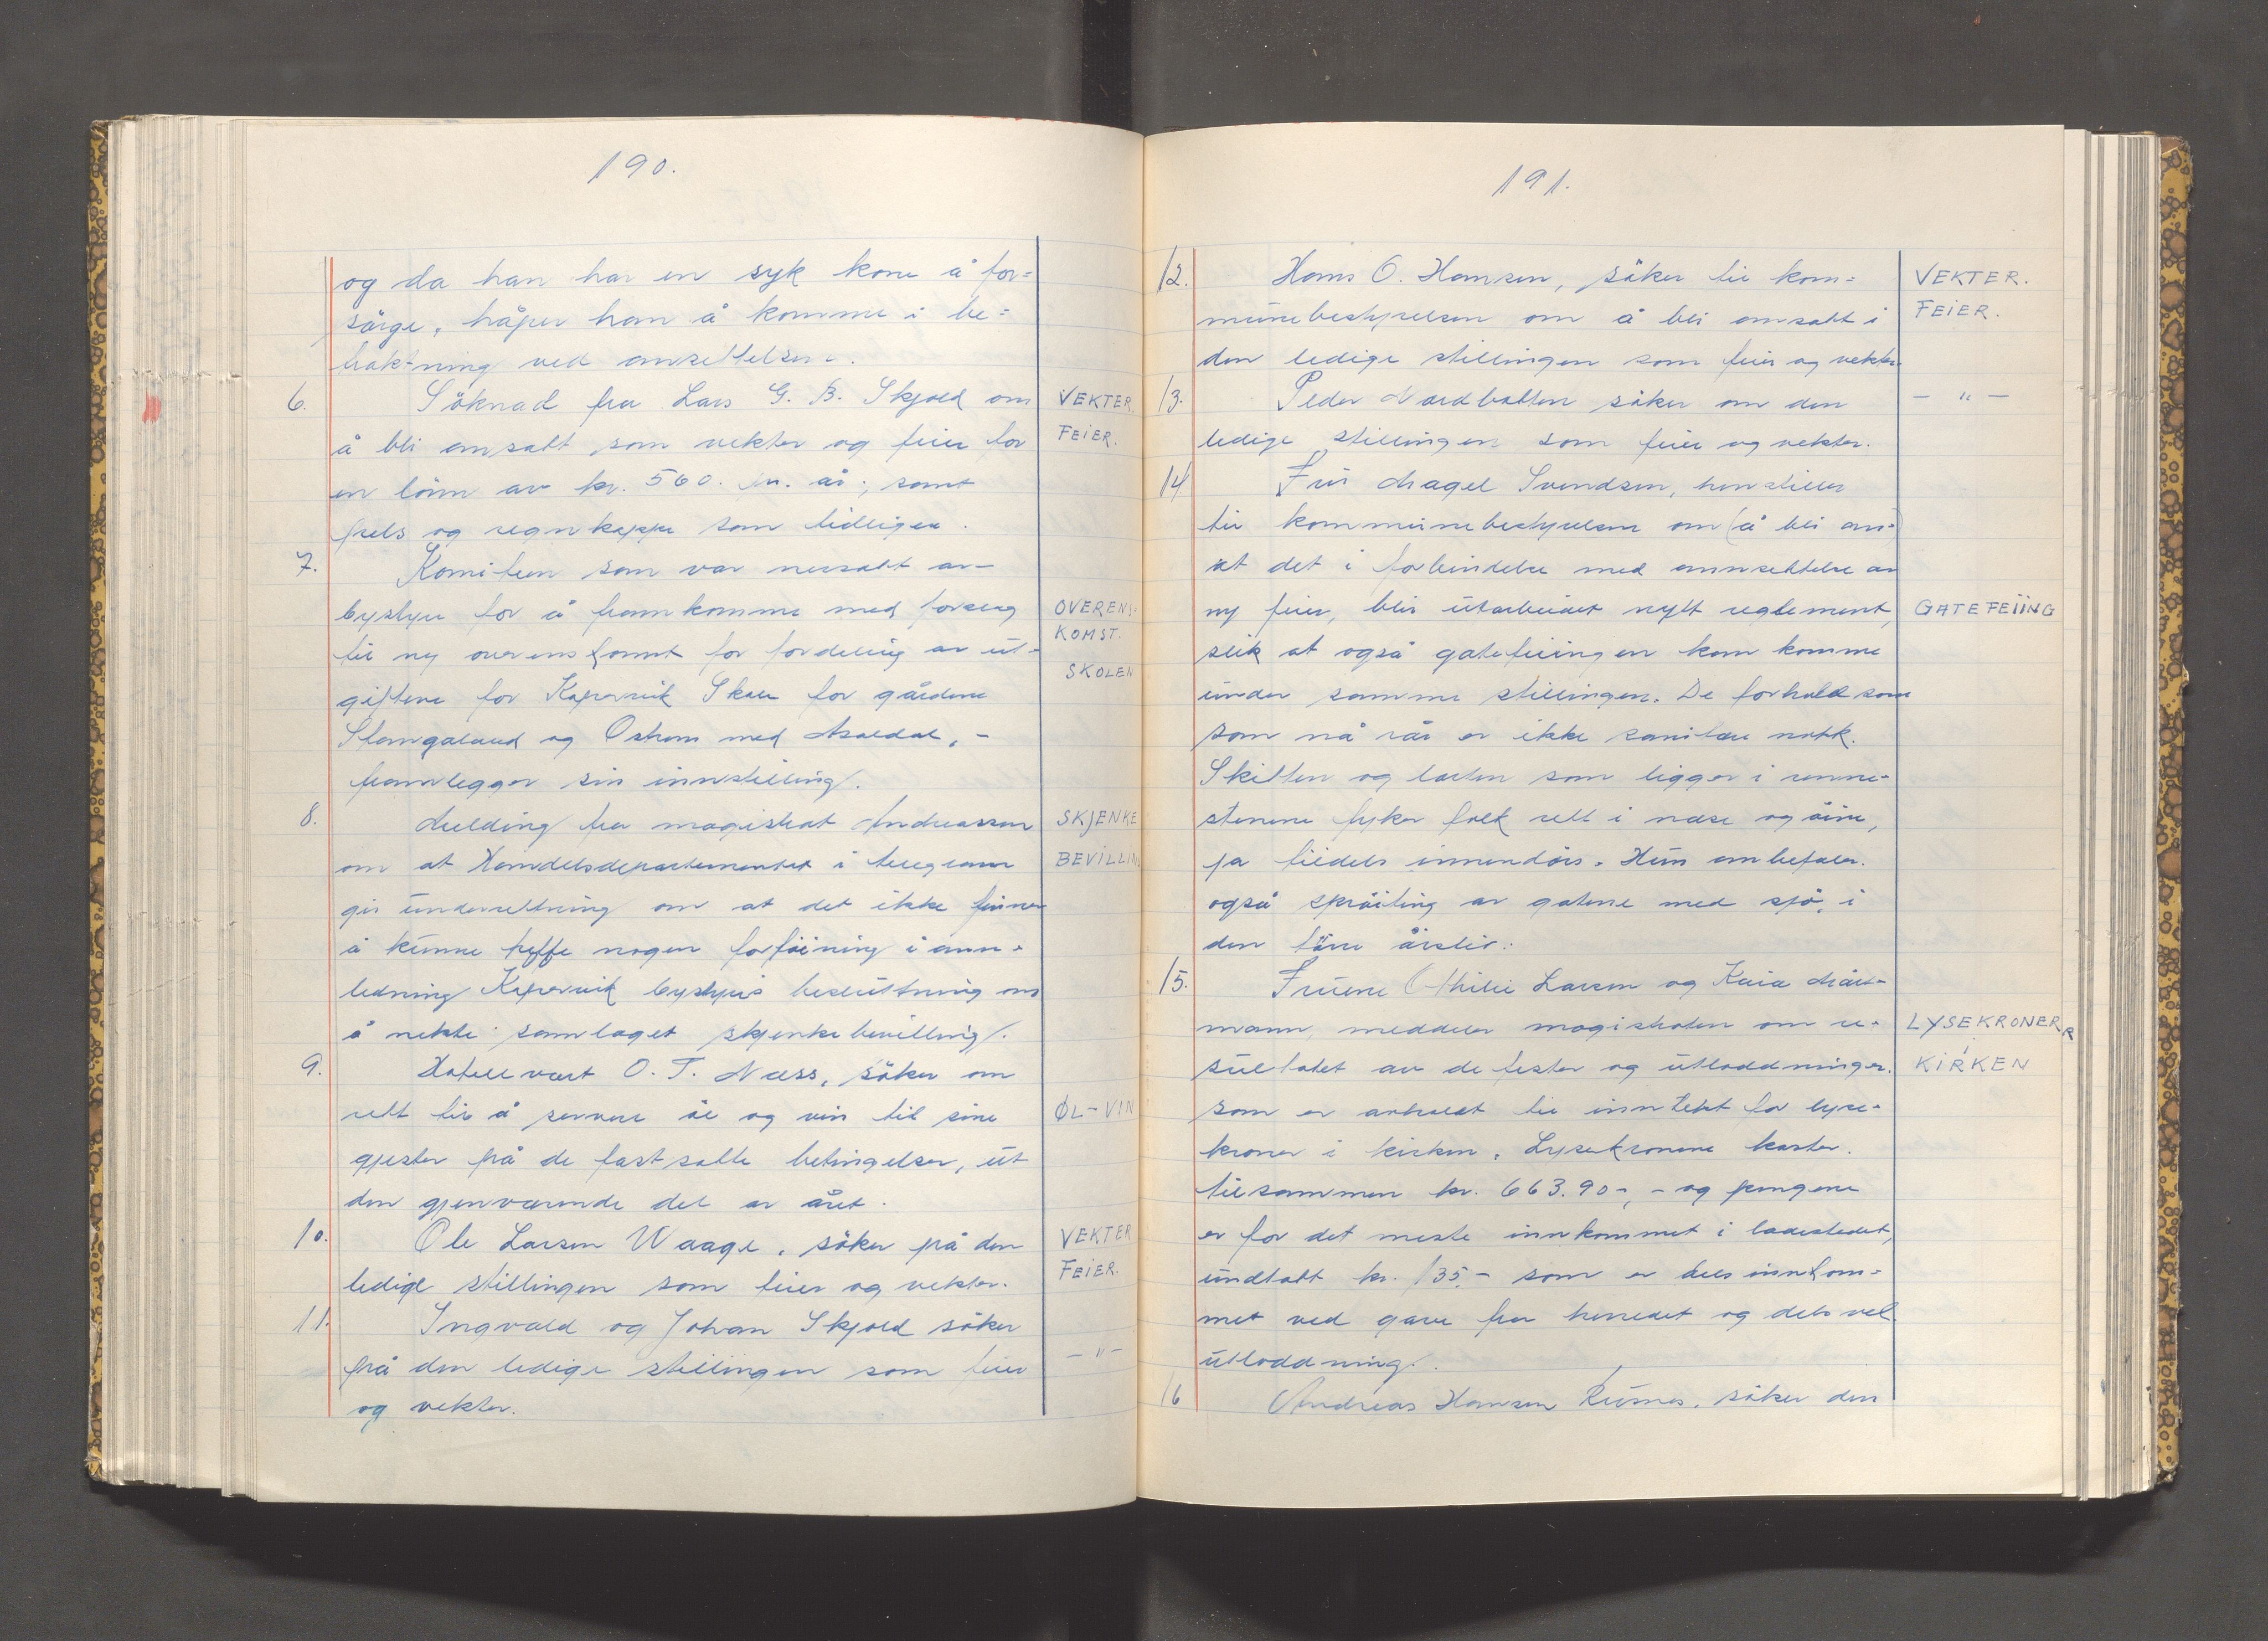 190.
og da han har en syk kone å for=
sörge, håper han å komme i be=
traktning ved ansettelsen.
6. Söknad fra Lars G. B. Skjold om
VEKTER.
å bli ansatt som vekter og feier for
FEIER.
en lönn av kr. 560. pr. år, samt
pels og regnkappe som tidligere.
7. Komiteen som var nersatt av
bystyre for å framkomme med forslag
OVERENS-
til ny overenskomst for fordeling av ut-
KOMST.
SKOLEN
giftene for Kopervik Skole for gårdene
Stangaland og Östrem med Åsaldal, -
framlegger sin innstilling.
8. Melding fra magistrat Andreassen
SKJENKE
om at Handelsdepartementet i telegram
BEVILLIN
gir underretning om at det ikke finner
å kunne treffe nogen forföining i ann-
ledning Kopervik bystyris besluttning om
å nekte samlaget skjenkebevilling.
9. Hotellvært O. T. Næss, söker om
rett til å servere öl og vin til sine
ØL-VIN
gjester på de fastsatte betingelser, ut
den gjenværende del av året.
10. Ole Larsen Waage, söker på den
VEKTER
ledige stillingen som feier og vekter.
FEIER.
11. Ingvald og Johan Skjold söker
på den ledige stillingen som feier
- " -
og vekter.
191.
12. Hans O. Hansen, söker til kom=
VEKTER.
munebestyrelsen om å bli ansatt i
FEIER.
den ledige stillingen som feier og vekter.
13. Peder Nordbotten söker om den
- " -
ledige stillingen som feier og vekter.
14 Fru Magel Svendsen, henstiller
til kommunebestyrelsen om (å bli an=)
at det i forbindelse med annsettelse av
ny feier, blir utarbeidet nytt reglement,
GATEFEIING
slik at også gatefeiingen kan komme
under samme stillingen. De forhold som
som nå rår er ikke sanitære nokk.
Skitten og lorten som ligger i renne-
stenene fyker folk rett i nese og öine,
ja tildels innendörs. Hun anbefaler.
også spröiting av gatene med sjö, i
den törre årstid.
15. Fruene Othilie Larsen og Kaia
mann, meddeler magistraten om re-
LYSEKRONER
sultatet av de fester og utloddninger.
i
KIRKEN
som er avholdt til inntekt for lyse-
kroner i kirken. Lysekronene koster.
tilsammen kr. 663.90-, - og pengene
er for det meste innkommet i ladestedet,
undtatt kr. 135,- som er dels innkom=
met ved gave fra herredet og dels ved
utloddning.
16 Andreas Hansen Rusnes, söker den